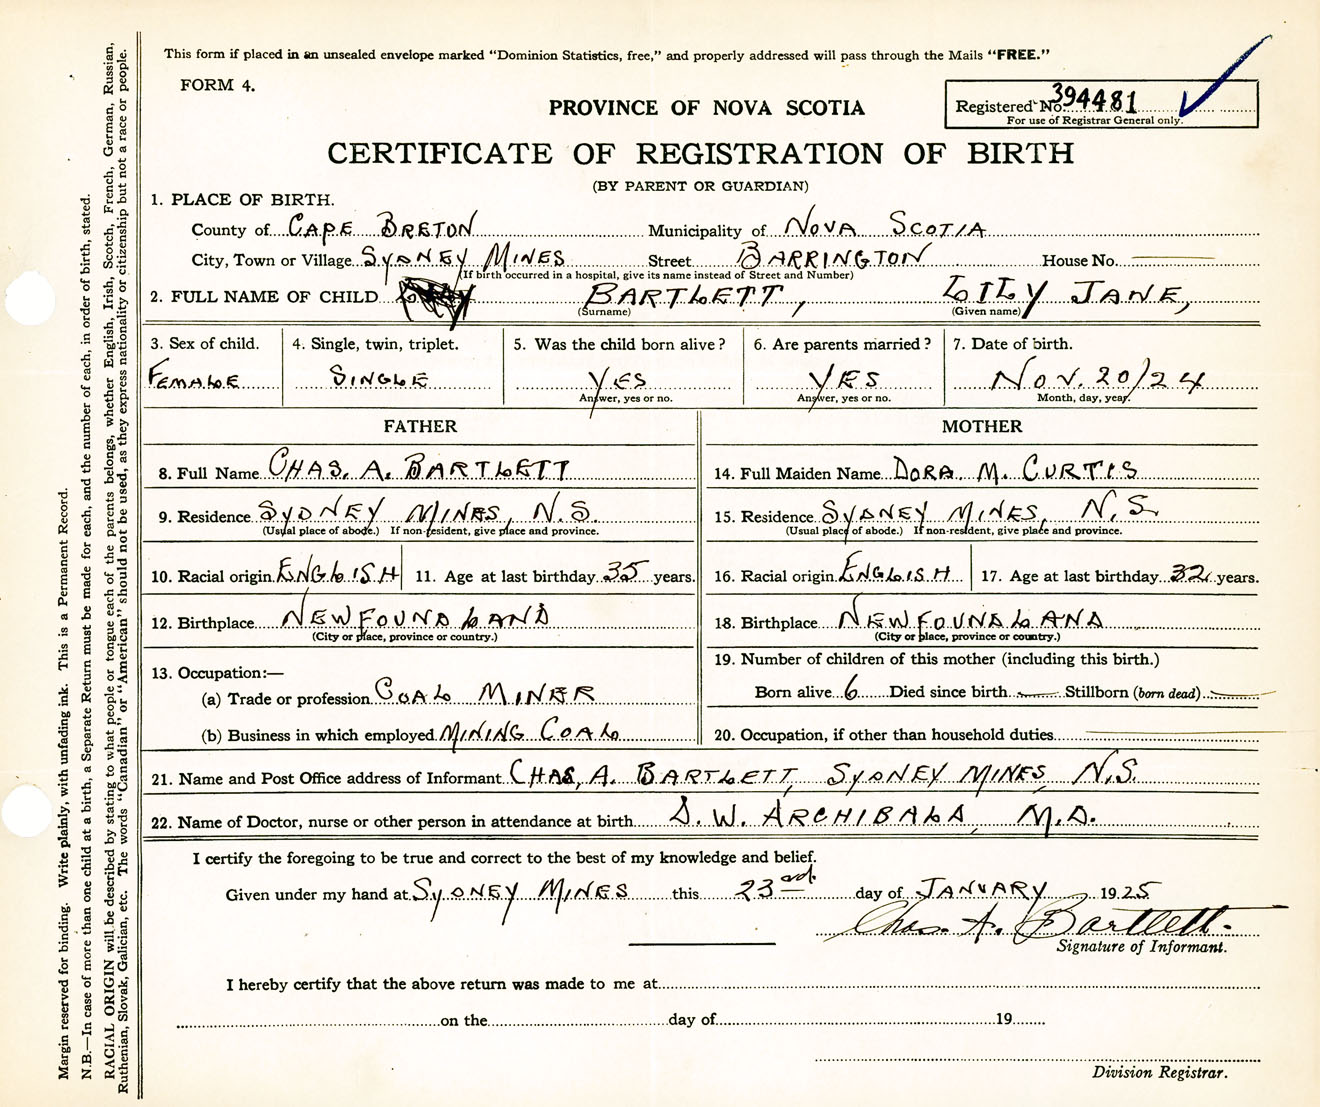 This form if placed in an unsealed envelope marked "Dominion Statistics, free," and properly addressed will pass through the Mails "FREE."
FORM 4.
Registered No. 394481
For use of Registrar General only.
PROVINCE OF NOVA SCOTIA
CERTIFICATE OF REGISTRATION OF BIRTH
(BY PARENT OR GUARDIAN)
1. PLACE OF BIRTH.
County of CAPE BRETON Municipality of NOVA SCOTIA
City, Town or Village SYDNEY MINES Street BARRINGTON House No.
(If birth occurred in a hospital, give its name instead of Street and Number)
2. FULL NAME OF CHILD BARTLETT, LILY JANE,
(Surname) (Given name)
3. Sex of child. 4. Single, twin, triplet. 5. Was the child born alive? 6. Are parents married? 7. Date of birth.
FEMALE SINGLE YES YES NOV. 20/24
Answer, yes or no. Answer, yes or no. Month, day, year.
FATHER MOTHER
8. Full Name CHAS. A. BARTLETT 14. Full Maiden Name DORA M. CURTIS
9. Residence SYDNEY MINES, N.S. 15. Residence SYDNEY MINES, N.S.
(Usual place of abode.) If non-resident, give place and province. (Usual place of abode.) If non-resident, give place and province.
10. Racial origin ENGLISH 11. Age at last birthday 35 years. 16. Racial origin ENGLISH 17. Age at last birthday 32 years.
12. Birthplace NEWFOUNDLAND 18. Birthplace NEWFOUNDLAND
(City or place, province or country.) (City or place, province or country.)
13. Occupation:— 19. Number of children of this mother (including this birth.)
(a) Trade or profession COAL MINER Born alive 6 Died since birth Stillborn (born dead)
(b) Business in which employed MINING COAL 20. Occupation, if other than household duties
21. Name and Post Office address of Informant CHAS. A. BARTLETT, SYDNEY MINES, N.S.
22. Name of Doctor, nurse or other person in attendance at birth D. W. ARCHIBALD, M.D.
I certify the foregoing to be true and correct to the best of my knowledge and belief.
Given under my hand at SYDNEY MINES this 23rd day of JANUARY 1925
Chas. A. Bartlett
Signature of Informant.
I hereby certify that the above return was made to me at
on the day of 19
Division Registrar.
Margin reserved for binding. Write plainly, with unfading ink. This is a Permanent Record.
N.B.—In case of more than one child at a birth, a Separate Return must be made for each, and the number of each, in order of birth, stated.
RACIAL ORIGIN will be described by stating to what people or tongue each of the parents belongs, whether English, Irish, Scotch, French, German, Russian,
Ruthenian, Slovak, Galician, etc. The words "Canadian" or "American" should not be used, as they express nationality or citizenship but not a race or people.